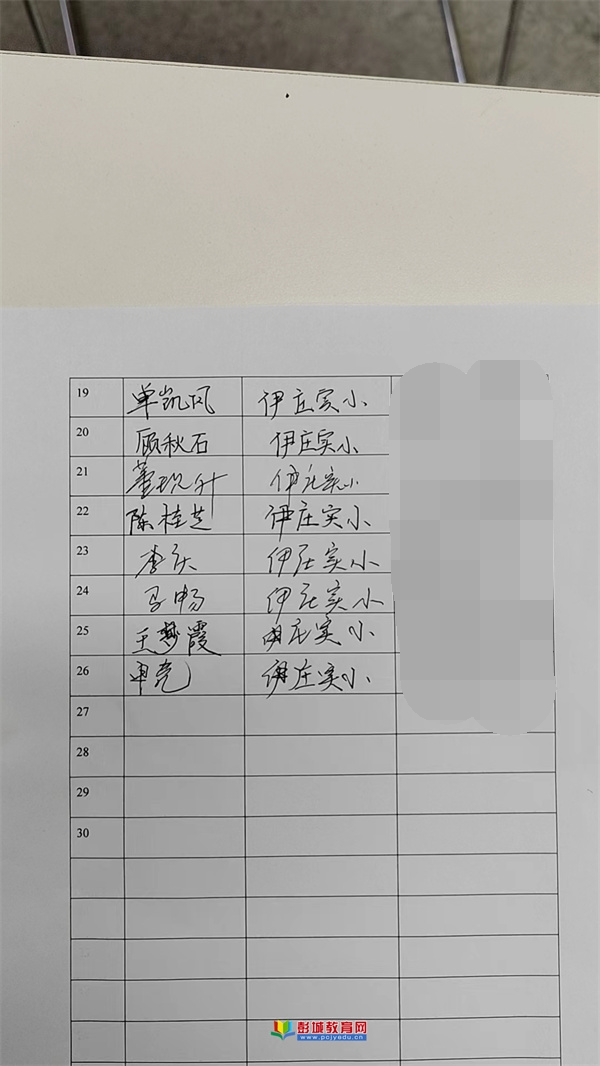 19 单凯风 伊庄实小
20 顾秋石 伊庄实小
21 董 伊庄实小
22 陈桂芝 伊庄实小
23 李庆 伊庄实小
24 马畅 伊庄实小
25 王梦霞 伊庄实小
26 申亮 伊庄实小
27
28
29
30
彭城教育网
www.pcjyedu.cn